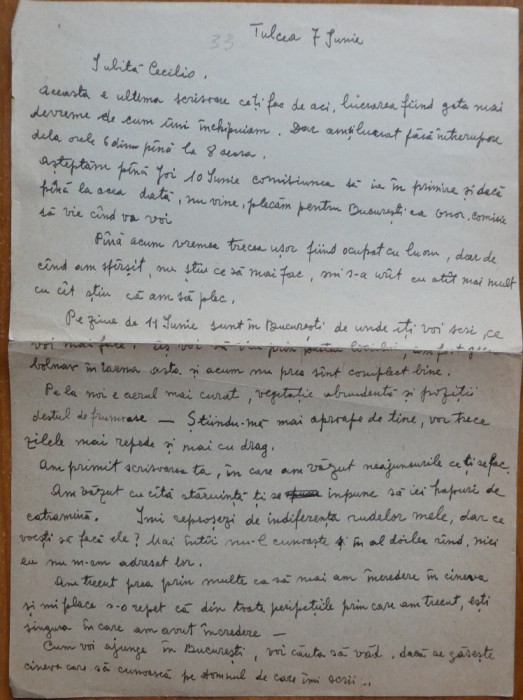 33
Tulcea 7 Iunie
Iubită Cecilio,
Aceasta e ultima scrisoare ce ți fac de aci, lucrarea fiind gata mai
devreme de cum îmi închipuiam. Dar am și lucrat fără întrerupere
dela orele 6 dim pînă la 8 seara.
Așteptăm pînă Joi 10 Iunie comisiunea să ia în primire și dacă
pînă la acea dată, nu vine, plecăm pentru București ea onor. comisie
să vie cînd va voi
Pînă acum vremea trecea ușor fiind ocupat cu lucru, dar de
cînd am sfîrșit, nu știu ce să mai fac, mi s-a urît cu atît mai mult
cu cît știu că am să plec.
Pe ziua de 11 Iunie sunt în București de unde iți voi scri, ce
voi mai face. voi să
bolnav în iarna asta și acum nu prea sînt complect bine.
Pe la noi e aerul mai curat, vegetație abundentă și poziții
destul de frumoase — Știindu-mă mai aproape de tine, vor trece
zilele mai repede și mai cu drag.
Am primit scrisoarea ta, în care am văzut neajunsurile ce ți se fac.
Am văzut cu cîtă stăruință ți se impune să iei hapuri de
catramină. Imi reproșezi de indiferența rudelor mele, dar ce
voești să facă ele? Mai întîi nu-l cunoaște și în al doilea rînd, nici
eu nu m-am adresat lor.
Am trecut prea prin multe ca să mai am încredere în cineva
și mi place s-o repet că din toate peripețiile prin care am trecut, ești
singura în care am avut încredere —
Cum voi ajunge în București, voi căuta să văd, dacă se găsește
cineva care să cunoască pe Domnul de care îmi scrii..